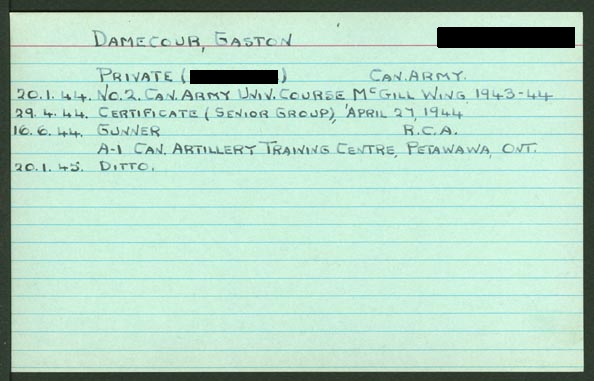 DAMECOUR, GASTON
PRIVATE ( ) CAN. ARMY.
20.1.44. No. 2. CAN. ARMY UNIV. COURSE McGILL WING 1943-44
29.4.44. CERTIFICATE (SENIOR GROUP), APRIL 27, 1944
16.6.44. GUNNER R.C.A.
A-1 CAN. ARTILLERY TRAINING CENTRE, PETAWAWA, ONT.
20.1.45. DITTO.